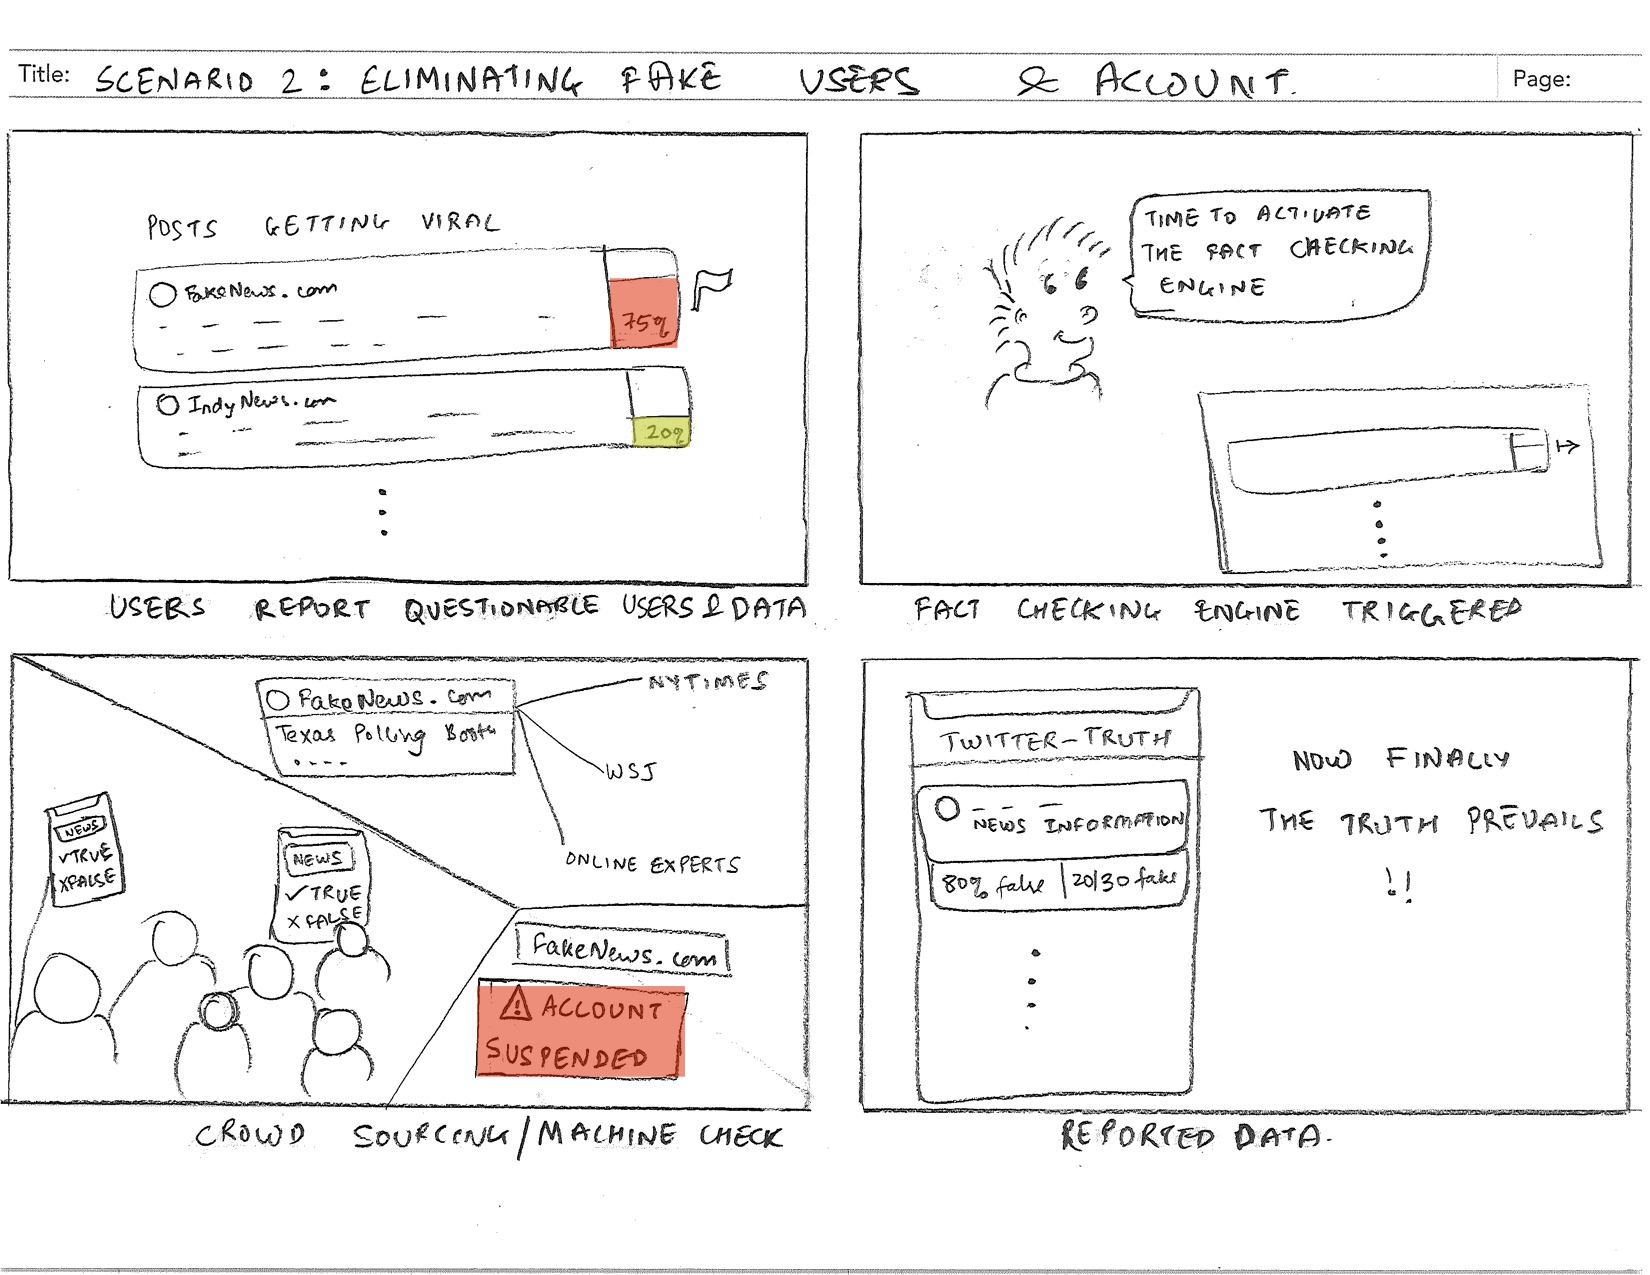 Title: SCENARIO 2: ELIMINATING FAKE USERS & ACCOUNT.
Page:
POSTS GETTING VIRAL
FakeNews.com
75%
IndyNews.com
20%
USERS REPORT QUESTIONABLE USERS & DATA
TIME TO ACTIVATE
THE FACT CHECKING
ENGINE
FACT CHECKING ENGINE TRIGGERED
FakeNews.com
Texas Polling Booth
NYTIMES
WSJ
ONLINE EXPERTS
NEWS
✓TRUE
XFALSE
NEWS
✓TRUE
X FALSE
FakeNews.com
⚠ ACCOUNT
SUSPENDED
CROWD SOURCING/MACHINE CHECK
TWITTER-TRUTH
NEWS INFORMATION
80% false | 20/30 fake
NOW FINALLY
THE TRUTH PREVAILS
!!
REPORTED DATA.